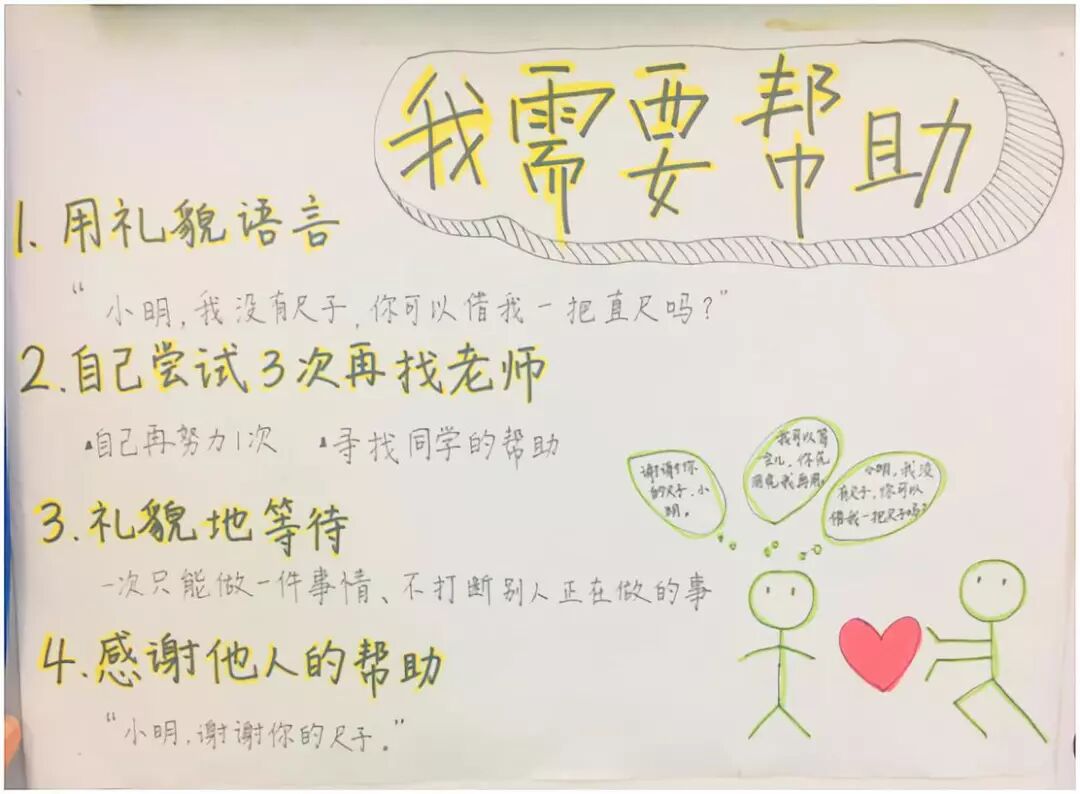 我需要帮助
1. 用礼貌语言
“小明,我没有尺子,你可以借我一把直尺吗?”
2. 自己尝试3次再找老师
·自己再努力1次 ·寻找同学的帮助
3. 礼貌地等待
一次只能做一件事情、不打断别人正在做的事
4. 感谢他人的帮助
“小明,谢谢你的尺子。”
谢谢你
的尺子,小
明。
我可以等
一会儿,你先
用完我再用。
小明,我没
有尺子,你可以
借我一把尺子吗?